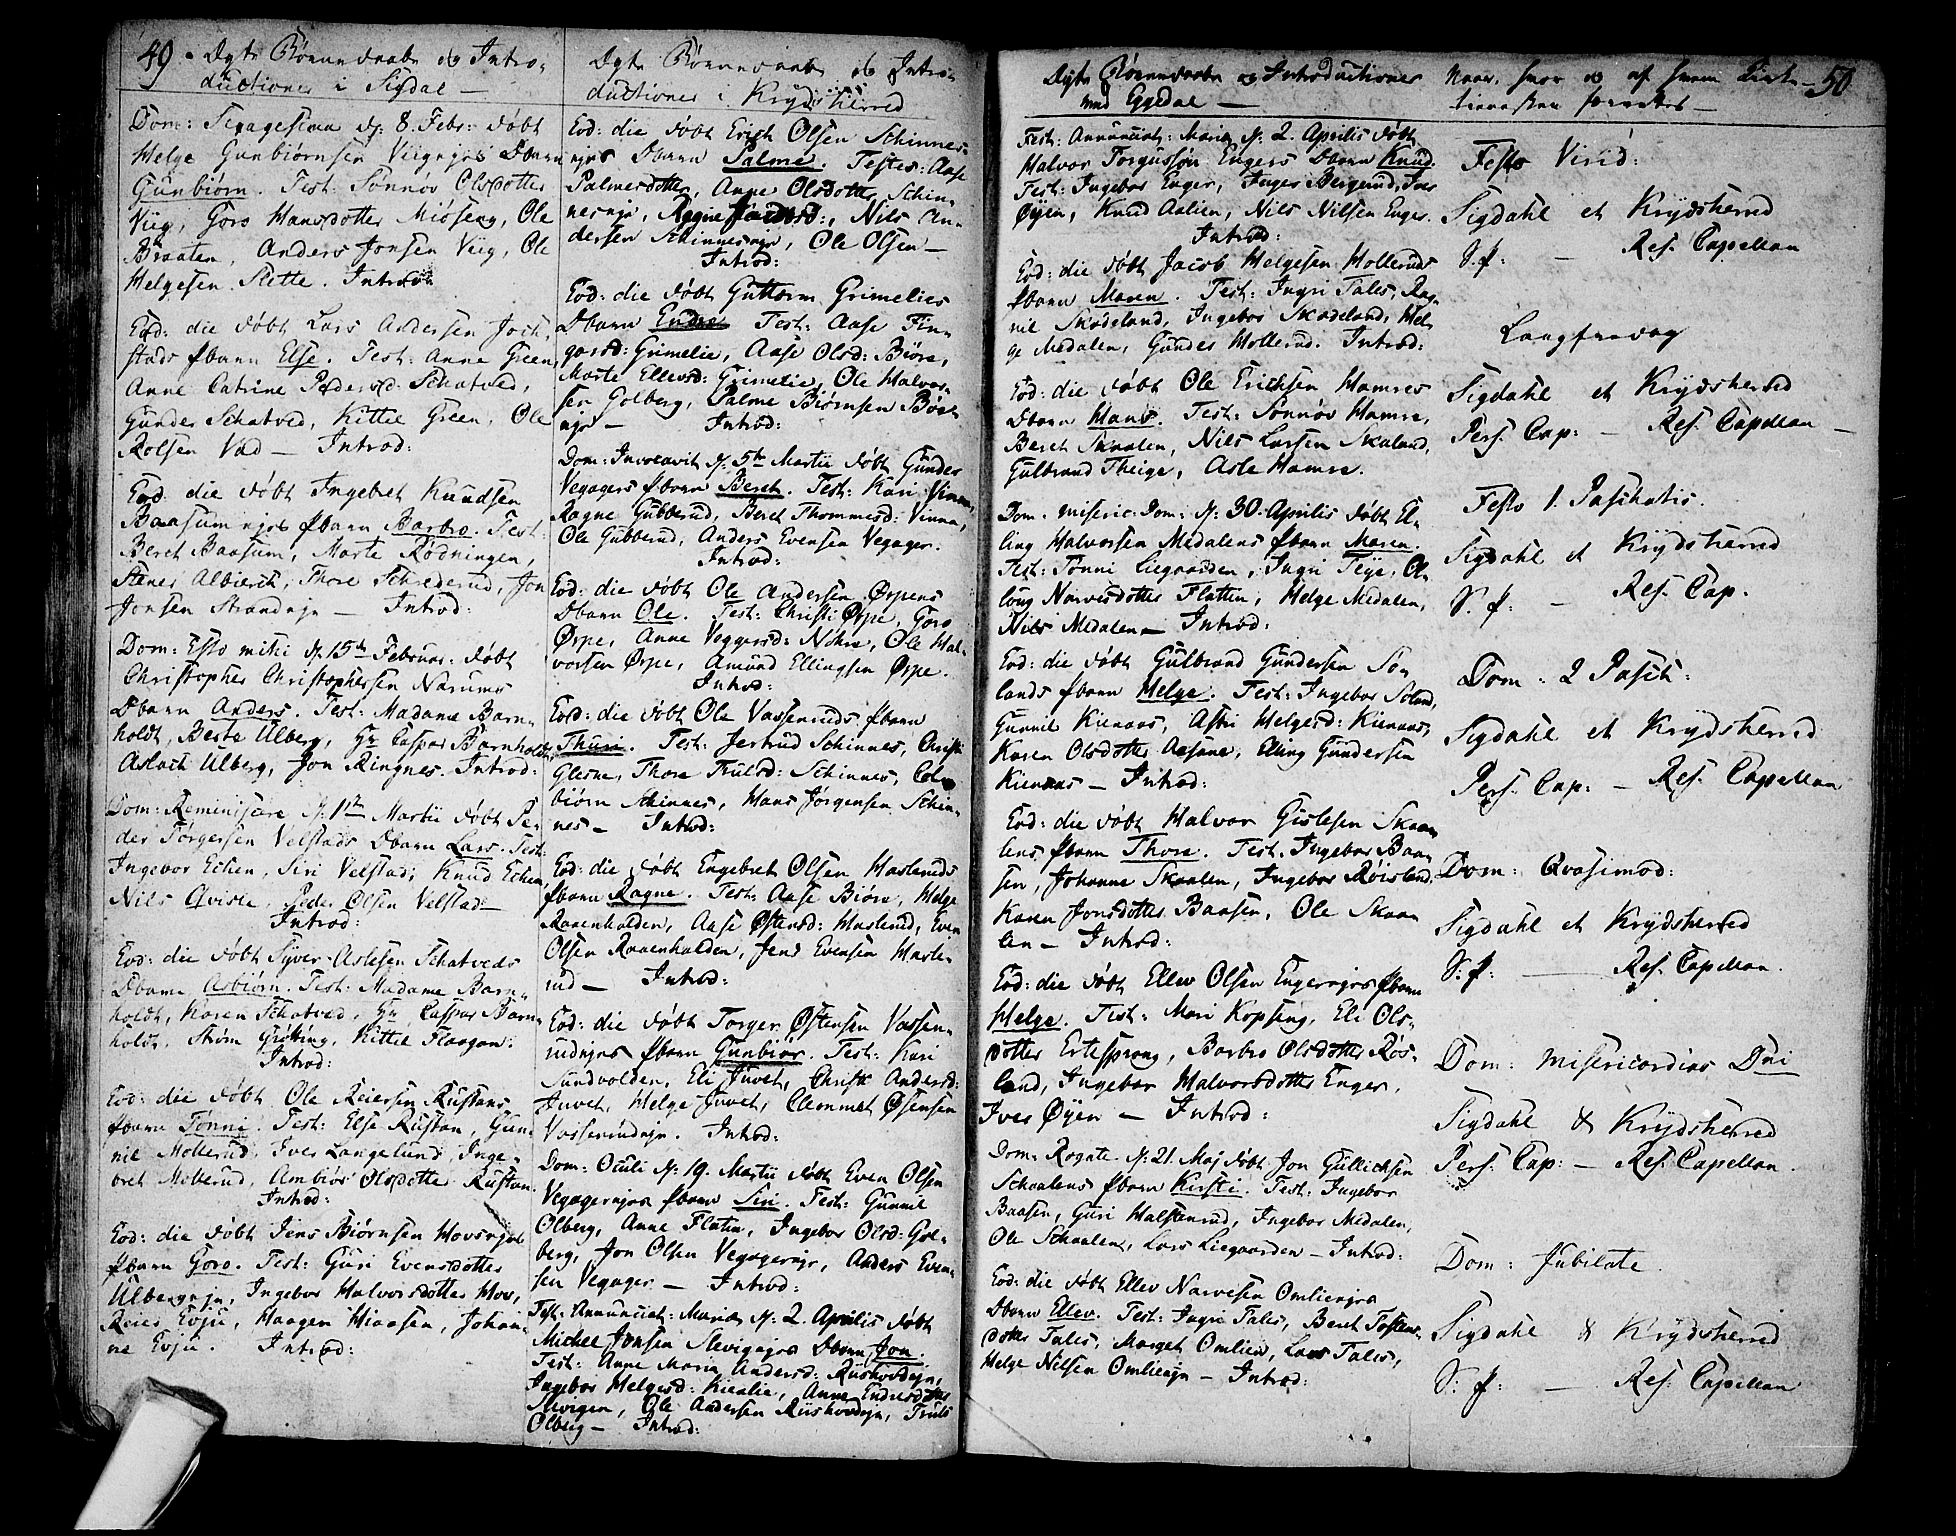 49 - Døgte Børnenaabe og Intro-
ductioner i Sigdal —
Dom: Sexagesima d: 8. Febr: døbt
Helge Gunbiørnsen Viigeiet Dbarn
Gunbiørn. Test: Sønnøv Olsdotter
Viig, Goro Hansdotter Miøseng, Ole
Braaten, Anders Jonsen Viig, Ole
Helgesen Slette. Introd:
Eod: die døbt Lars Andersen Joch-
stads Pbarn Else. Test: Anne Green,
Anne Catrine Pedersd: Schatved,
Gunder Schatved, Kittel Green, Ole
Rolsen Vad — Introd:
Eod: die døbt Ingebret Knudsen
Baasum ejet Pbarn Barbro. Test:
Beret Baasum, Marte Rødningen,
Stener Albierch, Thore Schrederud, Jon
Jonsen Strandeje — Introd:
Dom: Esto mihi d: 15de Februar: døbt
Christopher Christophersen Narums
Dbarn Anders. Test: Madame Barn-
holdt, Berte Ulberg, Hr Caspar Barnholdt,
Aslach Ulberg, Jon Ringnes. Introd:
Dom: Reminiscere d: 1ste Martii døbt Pe-
der Torgersen Velstads Dbarn Lars. Test:
Ingebor Echen, Siri Velstad, Knud Echen,
Nils Qvisle, Peder Olsen Velstad —
Introd:
Eod: die døbt Syver Aslesen Schatveds
Dbarn Asbiørn. Test: Madame Barn-
holdt, Karen Schatved, Hr Caspar Barn-
holdt, Strøm Grøting, Kittel Flaagan.
Introd:
Eod: die døbt Ole Reiersen Rustans
Pbarn Tønni. Test: Else Rustan, Gun-
nil Mollerud, Iver Langelund, Inge-
bret Mollerud, Ambiør Olsdotter Rustan
Introd:
Eod: die døbt Jens Biørnsen Hovsejet
Pbarn Goro. Test: Guri Evensdotter
Ulbergeje, Ingebor Halvorsdotter Hov,
Reier Evju, Haagen Hiaasen, Johan-
ne Evju. Introd:
Døgte Børnenaabe og Intro-
ductioner i Krydsherred
Eod: die døbt Erich Olsen Schinnes-
ejes Dbarn Palme. Testes: Aase
Palmesdotter, Anne Olsdotter Schin-
neseje, Ragne, Nils An-
dersen Schinneseje, Ole Olsen —
Introd:
Eod: die døbt Guttorm Grimelies
Dbarn Endre Test: Aase Fin-
garsd: Grimelie, Aase Olsd: Biøre,
Marte Ellevsd: Grimelie, Ole Halvor-
sen Golberg, Palme Biørnsen Biøre
eje — Introd:
Dom: Invocavit d: 5te Martii døbt Gunder
Vegagers Pbarn Beret. Test: Kari Vinne,
Ragne Gubberud, Beret Thommesd: Vinne,
Ole Gubberud, Anders Evensen Vegager.
Introd:
Eod: die døbt Ole Andersen Ørpens
Dbarn Ole. Test: Christi Ørpe, Goro
Ørpe, Anne Veggersd: Nøhre, Ole Hal-
vorsen Ørpe, Amund Ellingsen Ørpe.
Introd:
Eod: die døbt Ole Vassenruds Pbarn
Thuri. Test: Jertrud Schinnes, Christi
Glesne, Thore Trulsd: Schinnes, Col-
biørn Schinnes, Hans Jørgensen Schin-
nes — Introd:
Eod: die døbt Engebret Olsen Hasleruds
Pbarn Ragne. Test: Aase Biøre, Helge
Raaenholden, Aase Østensd: Haslerud, Even
Olsen Raaenholden, Jens Evensen Hasle-
rud — Introd:
Eod: die døbt Torger Østensen Vassen-
rudejes Pbarn Gunbiør. Test: Kari
Sundvolden, Eli Juvet, Christi Andersd:
Juvet, Helge Juvet, Clemmet Østensen
Vassenrudeje. Introd:
Dom: Oculi d: 19. Martii døbt Even Olsen
Vegagerejes Pbarn Siri. Test: Gunnil
Olberg, Anne Flaten, Ingebor Olsd: Gol-
berg, Jon Olsen Vegagereje, Anders Even-
sen Vegager — Introd:
Fest: Annunciat: Mariæ d: 2. Aprilis døbt
Michel Jonsen Slevigejes Dbarn Jon.
Test: Anne Maria Andersd: Riishovdeje,
Ingebor Helgesd: Kiealie, Anne Endresdotter
Slevigen, Ole Andersen Riishovdeje, Truls
Olberg — Introd:
Døgte Børnenaabe og Introductioner
ved Eggedal —
Fest: Annunciat: Mariæ d: 2. Aprilis døbt
Halvor Torgussøn Engers Dbarn Knud.
Test: Ingebor Enger, Inger Bergerud, Iver
Øyen, Knud Aalien, Nils Nilsen Enger.
Introd:
Eod: die døbt Jacob Helgesen Holleruds
Pbarn Maren. Test: Ingri Tales, Rag-
nil Skadeland, Ingebor Skadeland, Hel-
ge Medalen, Gunder Hollerud. Introd:
Eod: die døbt Ole Erichsen Hamres
Dbarn Hans. Test: Sønnøv Hamre,
Beret Skaalen, Nils Larsen Skaland,
Gulbrand Theige, Asle Hamre.
Dom. Miseric: Dom: d: 30. Aprilis døbt El-
ling Halvorsen Medalens Pbarn Maren.
Test: Tønni Liegaarden, Ingri Teye, O-
loug Narvesdotter Flatten, Helge Medalen,
Nils Medalen — Introd:
Eod: die døbt Gulbrand Gundersen So-
lands Pbarn Helge. Test: Ingebor Soland,
Gunnil Kienaas, Astri Helgesd: Kienaas,
Karen Olsdotter Aasane, Elling Gundersen
Kienaas — Introd:
Eod: die døbt Halvor Gislesen Skaa-
lens Pbarn Thore. Test: Ingebor Baa-
sen, Johanne Skaalen, Ingebor Røisland,
Karen Jonsdotter Baasen, Ole Skaa-
len — Introd:
Eod: die døbt Ellev Olsen Engerejes Pbarn
Helge. Test: Mari Kopseng, Eli Ols-
dotter Ertesprang, Barbro Olsdotter Røs-
land, Ingebor Halvorsdotter Enger,
Iver Øyen — Introd:
Dom: Rogate d: 21. Maj døbt Jon Gullichsen
Schaalens Pbarn Kirsti. Test: Ingebor
Baasen, Guri Halstenrud, Ingebor Medalen,
Ole Schaalen, Lars Liegaarden — Introd:
Eod: die døbt Ellev Narvesen Omliensejes
Dbarn Ellev. Test: Ingri Tales, Beret Torstens-
dotter Tales, Marget Omlien, Lars Tales,
Helge Nilsen Omlieneje — Introd:
Naar, hvor og af hvem Tieneste- 50
tienesten forrettet —
Festo Virid:
Sigdahl et Krydsherred
S. P: — Res. Capellan
Langfredag
Sigdahl et Krydsherred
Pers. Cap: — Res. Capellan —
Festo 1. Paschatis.
Sigdahl et Krydsherred
S. P: — Res. Cap.
Dom: 2 Pasch:
Sigdahl et Krydsherred
Pers. Cap: — Res. Capellan
Dom: Qvasimod:
Sigdahl et Krydsherred
S: P: — Res. Capellan.
Dom: Misericordias Dni
Sigdahl & Krydsherred
Pers. Cap: — Res. Capellan.
Dom: Jubilate
Sigdahl & Krydsherred
S: P: — Res. Capellan